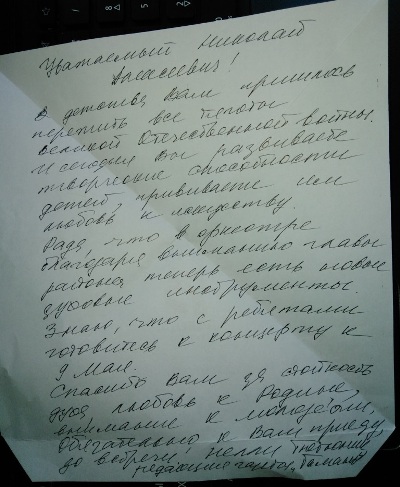 Уважаемый Николай
Алексеевич!
В детстве Вам пришлось
пережить все тяготы
Великой Отечественной войны.
И сегодня Вы развиваете
творческие способности
детей, прививаете им
любовь к искусству.
Рада, что в оркестре
благодаря вниманию главы
района теперь есть новые
духовые инструменты.
Знаю, что с ребятами
готовитесь к концерту к
9 Мая.
Спасибо Вам за стойкость
духа, любовь к Родине,
внимание к молодёжи,
Обязательно к Вам приеду,
до встречи, Нелли
редакция газеты